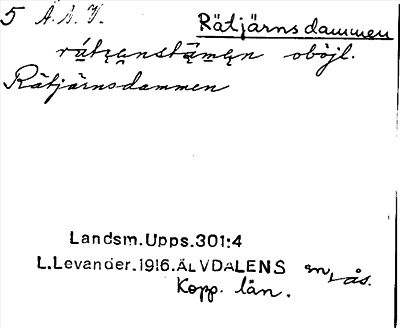 5 Å. N. V.
Rätjärnsdammen
oböjl.
Rätjärnsdammen
Landsm.Upps.301:4
L.Levander.1916.ÄLVDALENS
ås.
Kopp. län.